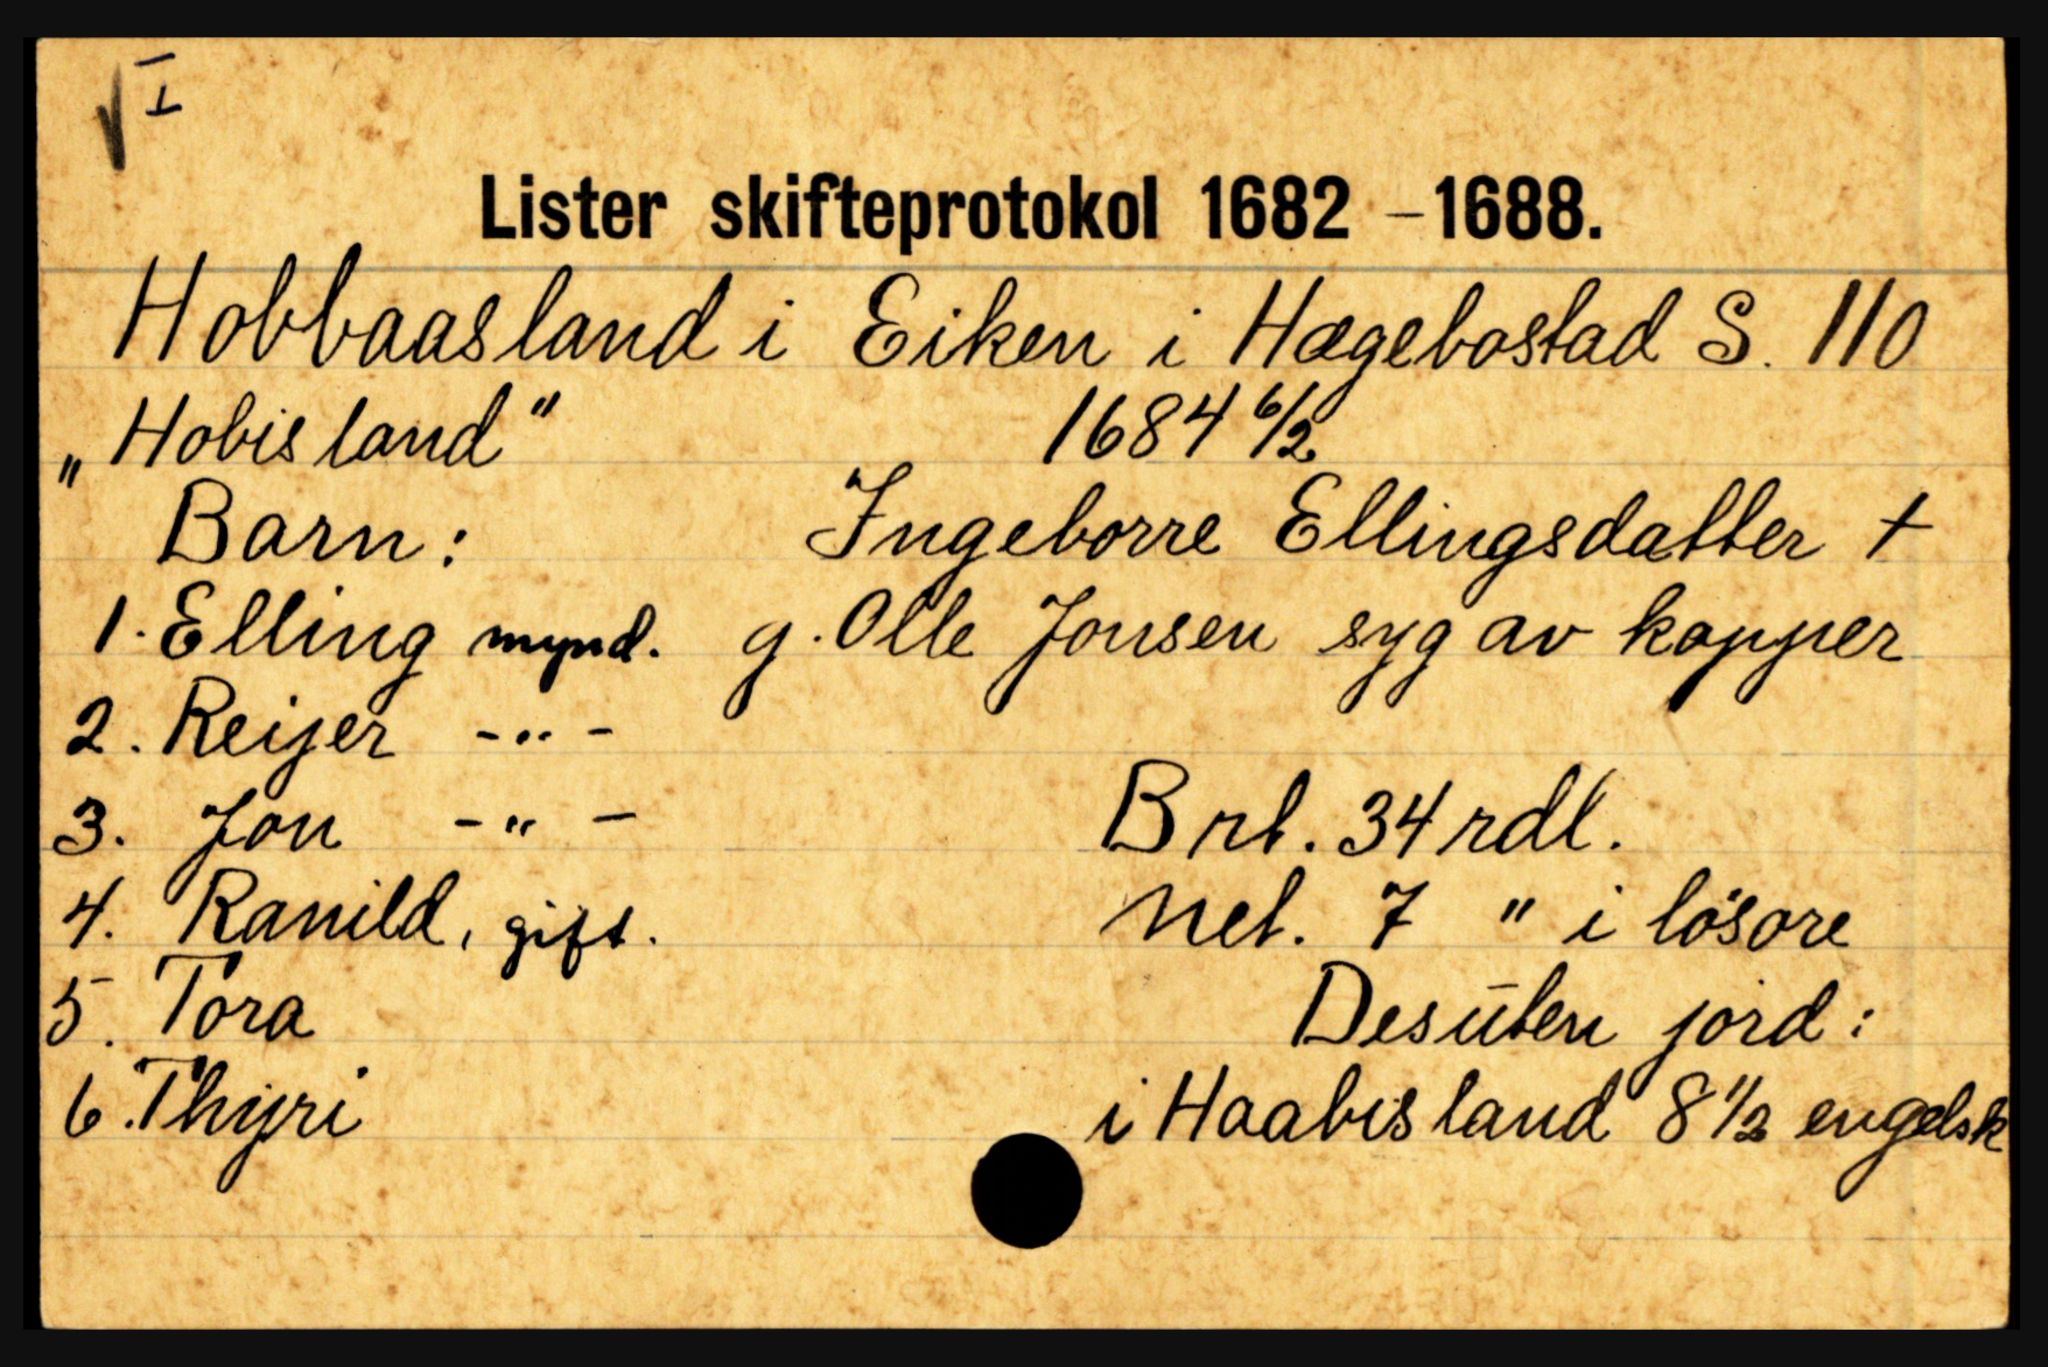 √ I
Lister skifteprotokol 1682 - 1688.
Hobbaasland i Eiken i Hægebostad S. 110
„Hobisland" 1684 6/2
Barn: Ingeborre Ellingsdatter +
1. Elling mynd. g. Olle Jonsen syg av kopper
2. Reijer - " -
3. Jon - " - Brt. 34 rdl.
4. Ranild, gift. Net. 7 " i lösöre
5. Tora Desuten jord:
6. Thyri i Haabisland 8 1/2 engelsk